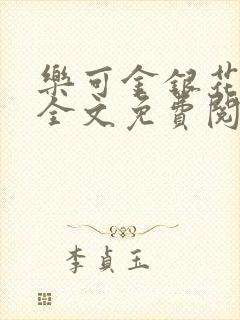 樂可金銀花
全文免費閱
李貞玉